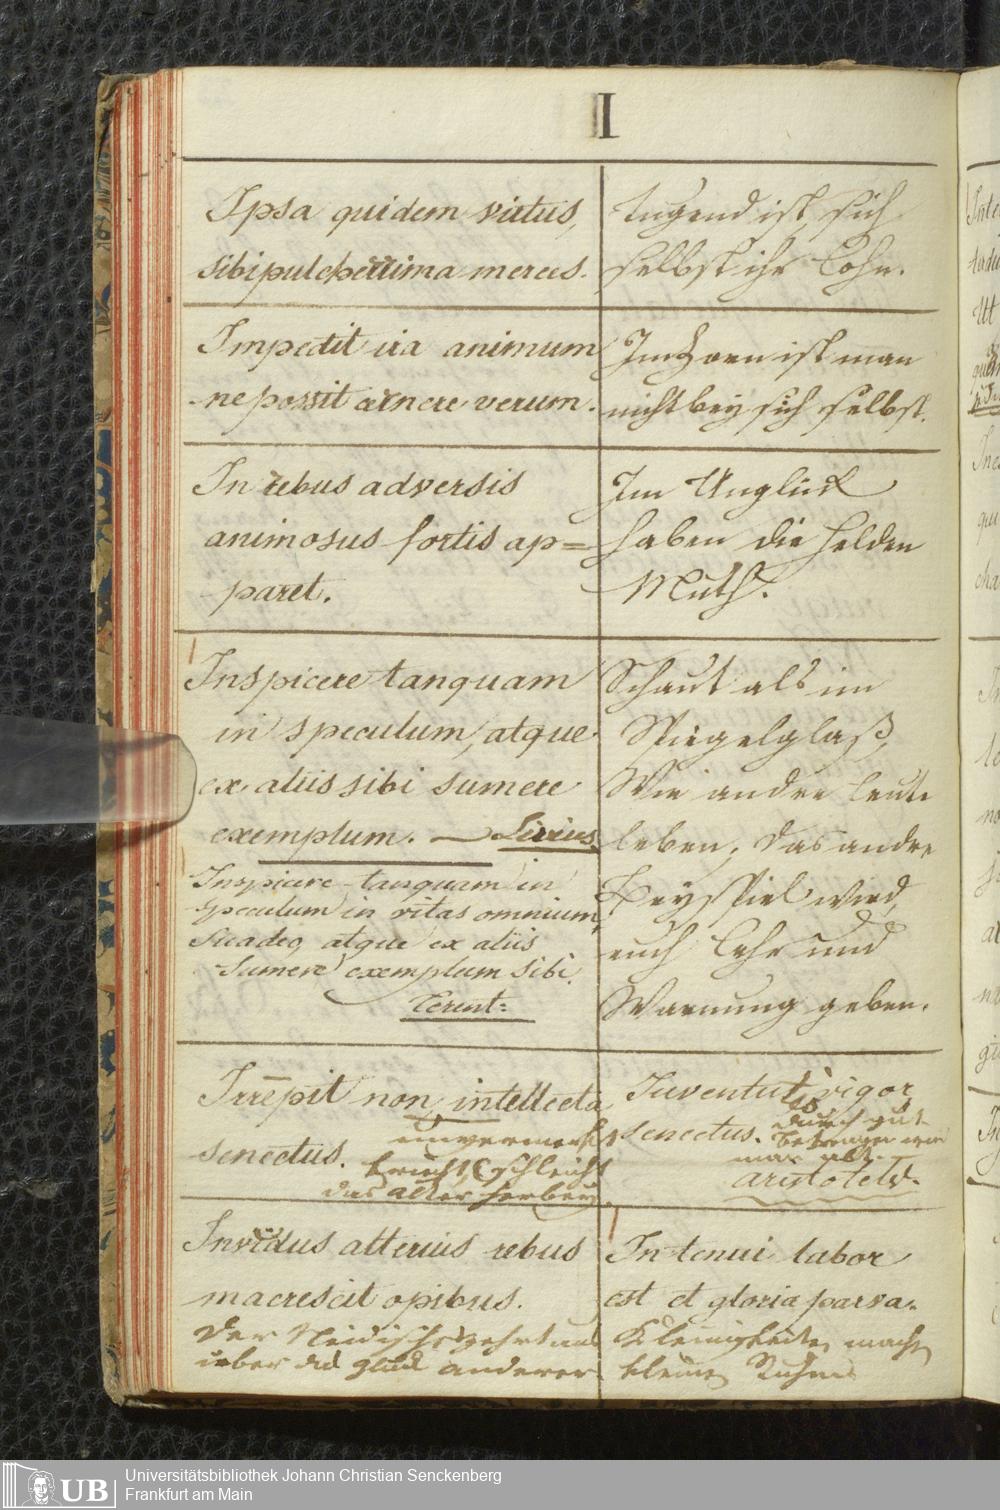 I
Ipsa quidem virtus,
sibi pulcherrima merces.
Tugend ist sich
selbst ihr Lohn.
Impedit ira animum
ne possit cernere verum.
Im Zorn ist man
nicht bey sich selbst.
In rebus adversis
animosus fortis ap=
paret.
Im Unglück
haben die Helden
Muth.
Inspicere tanquam
in speculum, atque
ex aliis sibi sumere
exemplum. —
Inspicere tanquam in
speculum in vitas omnium,
suadeo, atque ex aliis
sumere exemplum sibi.
Terent:
Schaut als im
Spiegelglaß,
Wie andre Leute
leben, das andre
Beyspiel wird,
euch Lehr und
Warnung geben.
Irrepit non intellecta
senectus.
unvermerkt
schleicht
das alter herbey.
Juventut vigor
senectus.
durch gut
Betragen wird
man alt.
aristotels.
Invidus alterius rebus
macrescit opibus.
Der Neidische zehrt
ueber das glück anderer
In tenui labor
est et gloria parva.
Kleinigkeiten machen
kleinen Ruhm
UB
Universitätsbibliothek Johann Christian Senckenberg
Frankfurt am Main